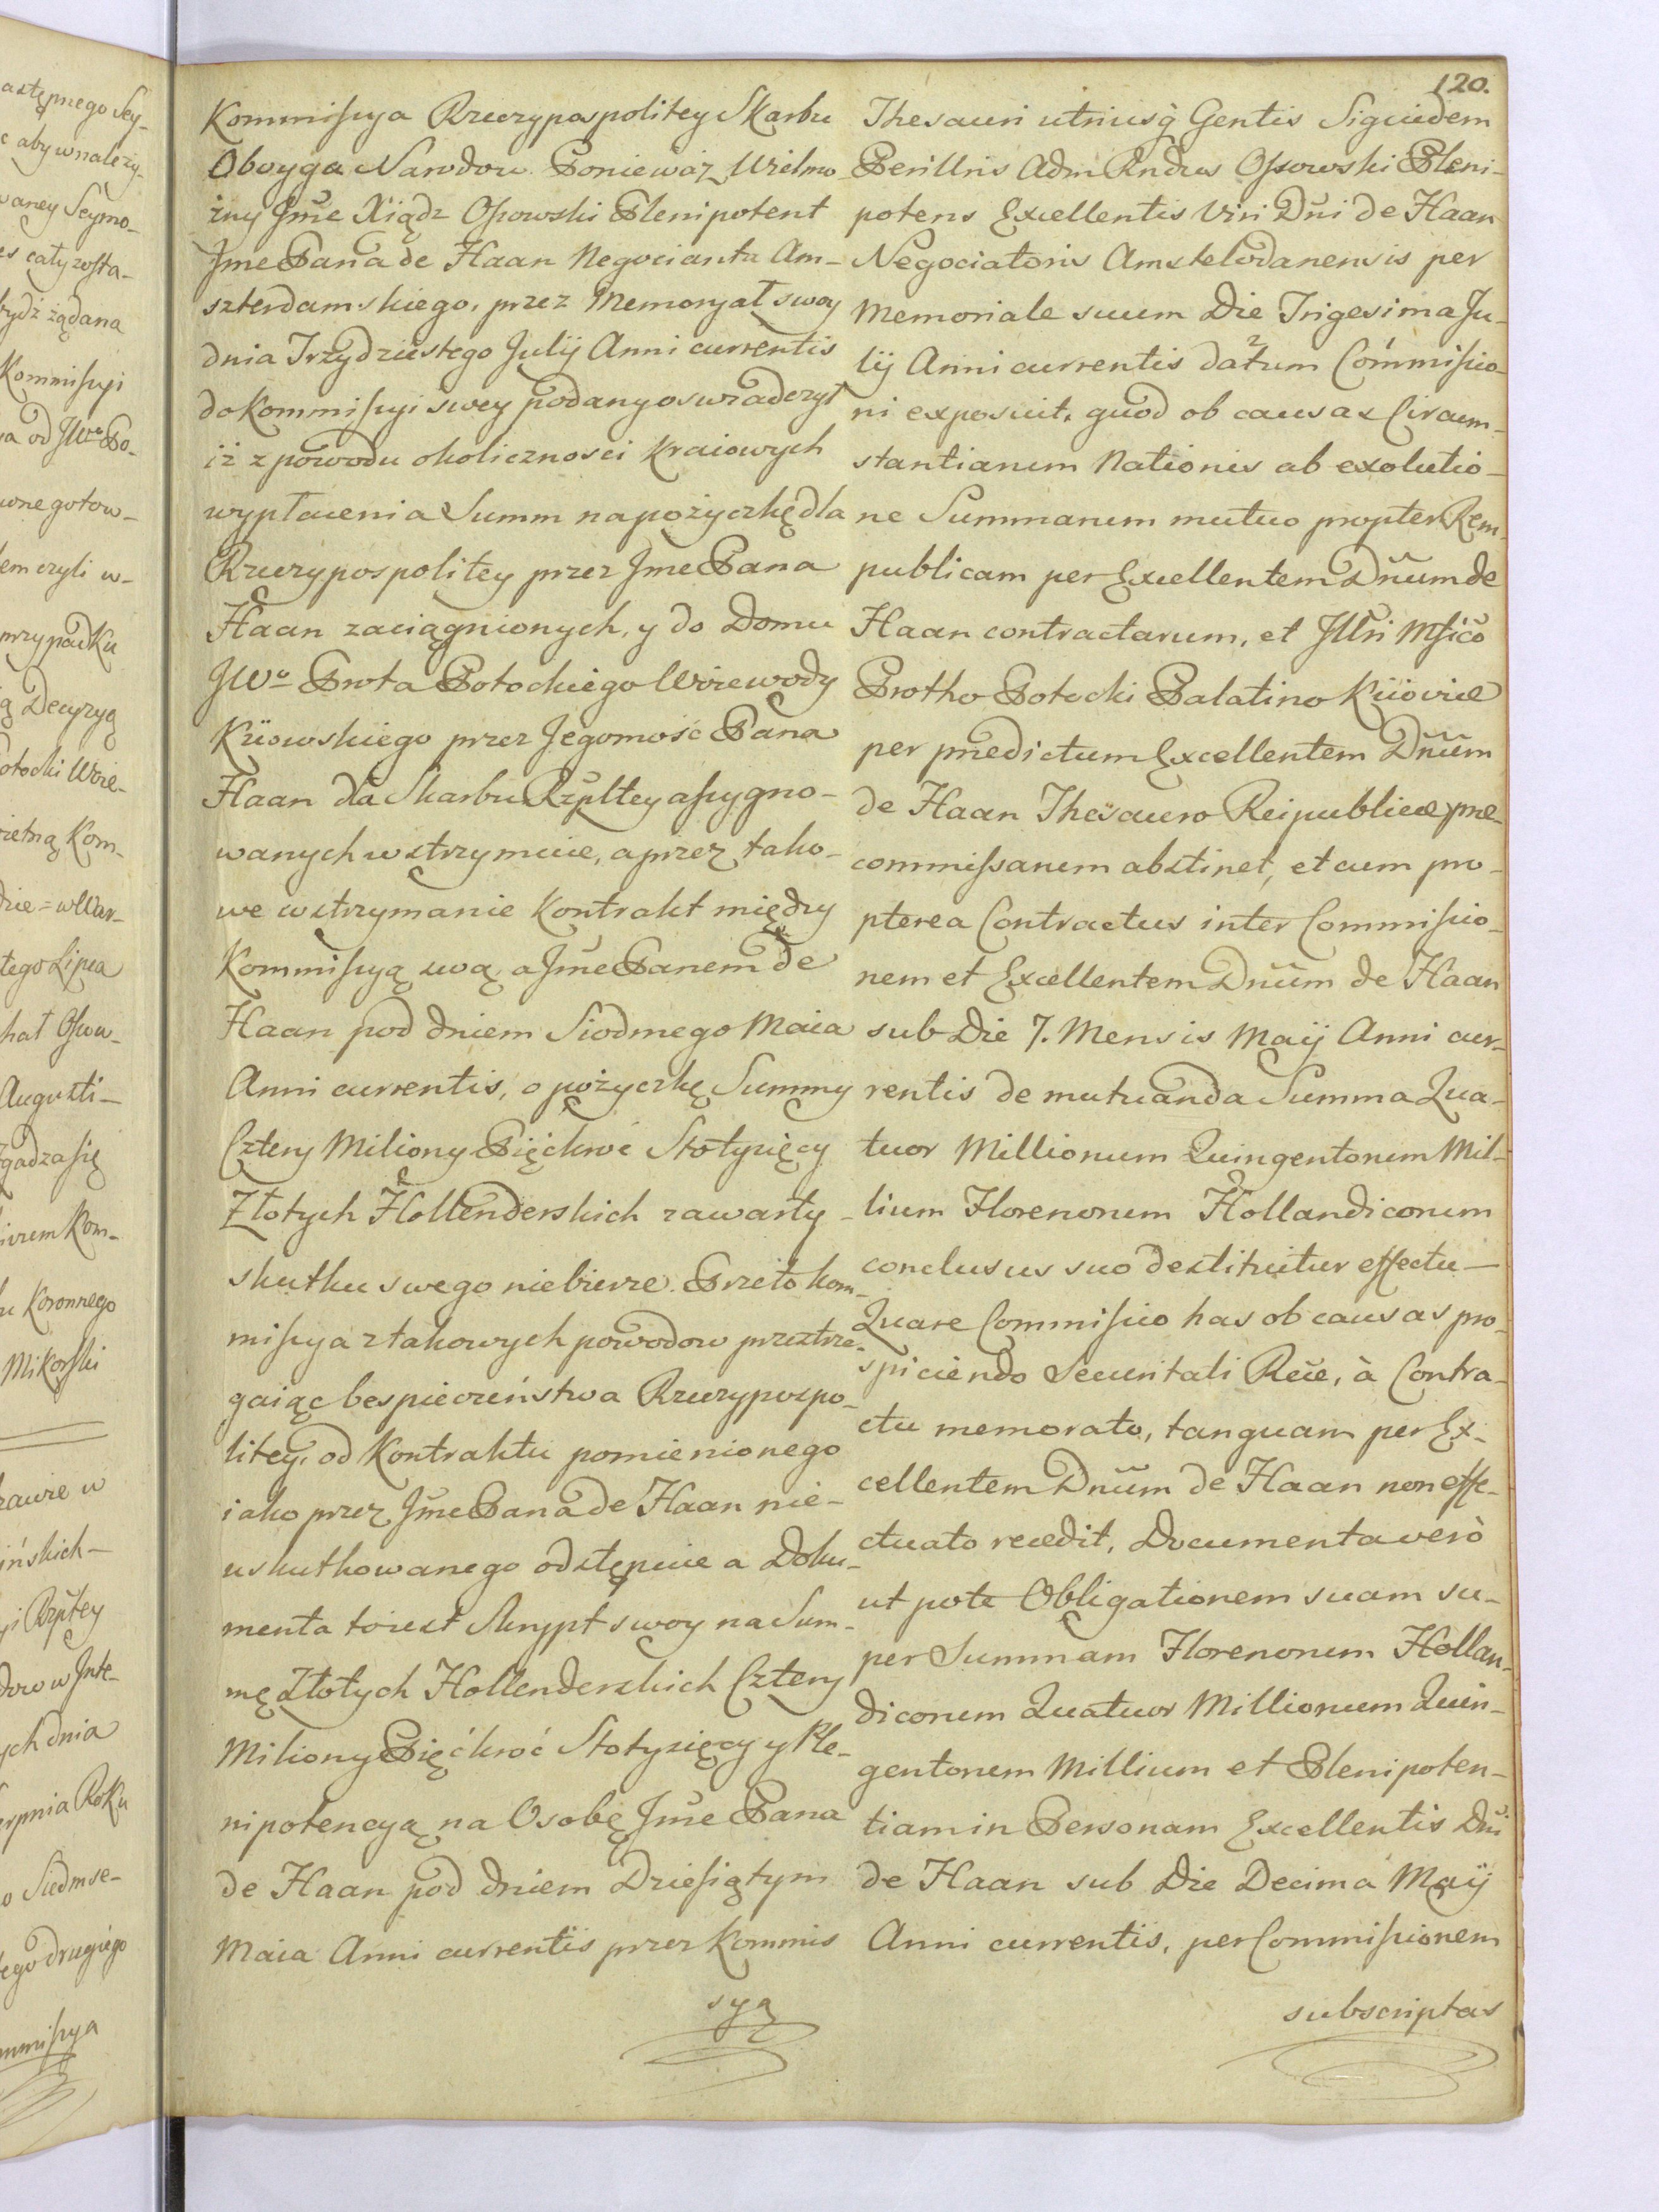 120.
Kommissya Rzeczypospolitey Skarbu
Oboyga Narodow. Ponieważ Wielmo-
żny Jmć Xiądz Ossowski Plenipotent
Jmć Pana de Haan Negocianta Am-
szterdamskiego, przez Memoryał swoy
dnia Trzydziestego Julij Anni currentis
do Kommissyi swey podany oswiadczył
iż z powodu okolicznosci kraiowych
wypłacenia Summ na pożyczkę dla
Rzeczypospolitey przez Jmć Pana
Haan zaciągnionych, y do Domu
JWo Prota Potockiego Woiewody
Kiiowskiego przez Jegomość Pana
Haan dla Skarbu Rzpltey assygno-
wanych wstrzymuie, a przez tako-
we wstrzymanie Kontrakt między
Kommissyą swą a Jmć Panem de
Haan pod dniem Siodmego Maia
Anni currentis, o pożyczkę Summy
Cztery Miliony Pięćkroć Stotysięcy
Złotych Hollenderskich zawarty -
skutku swego niebierze. Przeto kom-
missya z takowych powodow przestrze-
gaiąc bespieczeństwa Rzeczypospo-
litey, od Kontraktu pomienionego
iako przez Jmć Pana de Haan nie-
uskutkowanego odstępuie a Doku-
menta to iest Skrypt swoy na Sum-
mę Złotych Hollenderskich Cztery
Miliony Pięćkroć Stotysięcy y Ple-
nipotencyą na Osobę Jmć Pana
de Haan pod dniem Dziesiątym
Maia Anni currentis przez Kommis
syą
Thesauri utriusq Gentis Siquidem
Perillris Adm Rndus Ossowski Pleni-
potens Excellentis Viri Dni de Haan
Negociatoris Amstelodanensis per
Memoriale suum Die Trigesima Ju-
lij Anni currentis datum Commissio-
ni exposuit, quod ob causas Circum-
stantiarum Nationis ab exolutio-
ne Summarum mutuo propter Rem-
publicam per Excellentem Dnum de
Haan contractarum, et Jllri Mfico
Protho Potocki Palatino Kiioviæ
per prædictum Excellentem Dnum
de Haan Thesauro Reipublicæ præ-
commissarum abstinet, et cum pro-
pterea Contractus inter Commissio-
nem et Excellentem Dnum de Haan
sub Die 7. Mensis Maij Anni cur-
rentis de mutuanda Summa Qua-
tuor Millionum Quingentorum Mil-
lium Florenorum Hollandicorum
conclusus suo destituitur effectu -
Quare Commissio has ob causas pro-
spiciendo Securitati Rcæ, à Contra-
ctu memorato, tanquam per Ex-
cellentem Dnum de Haan non effe-
ctuato recedit, Documenta verò
ut pote Obligationem suam su-
per Summam Florenorum Hollan-
dicorum Quatuor Millionum Quin-
gentorum Millium et Plenipoten-
tiam in Personam Excellentis Dni
de Haan sub Die Decima Maij
Anni currentis, per Commissionem
subscriptas